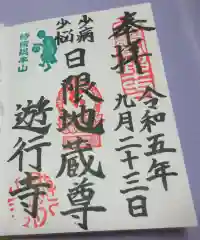 奉拝
令和五年
九月二十三日
少病
少悩
日限地蔵尊
遊行寺